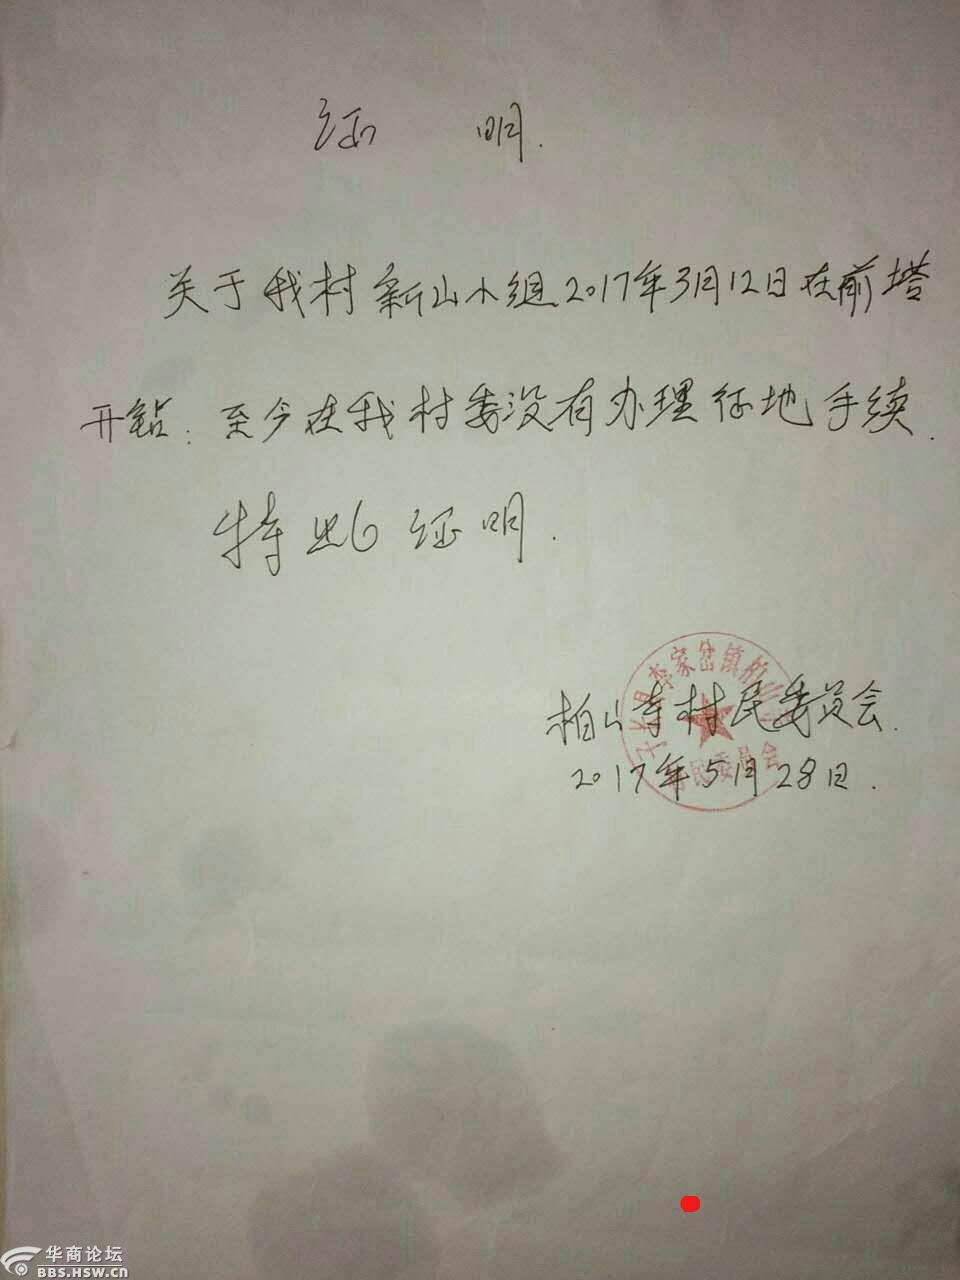 证 明.
关于我村新山小组2017年3月12日在前塔
开钻.至今在我村委没有办理征地手续.
特此证明.
子长县李家岔镇柏山寺
村民委员会
柏山寺村民委员会.
2017年5月28日.
华商论坛
BBS.HSW.CN